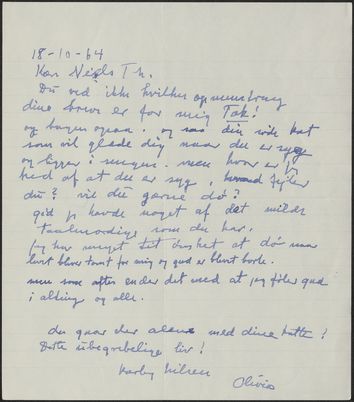 18-10-64
Kære Niels Th.
Du ved ikke hvilken opmuntring
dine breve er for mig Tak!
og bagen ogsaa. og saa din røde kat
som vil glæde dig naar du er syg
og ligger i sengen. men hvor er jeg
ked af at du er syg, hvad fejler
du? vil du gerne dø?
gid jeg havde noget af det milde
taalmodige som du har.
jeg har meget let ønsket at dø naar
livet bliver tomt for mig og gud er blevet borte.
men som oftes ender det med at jeg føler gud
i alting og alle.
du quar der alene med dine katte!
Dette ubegribelige liv!
Kærlig hilsen
Olivia